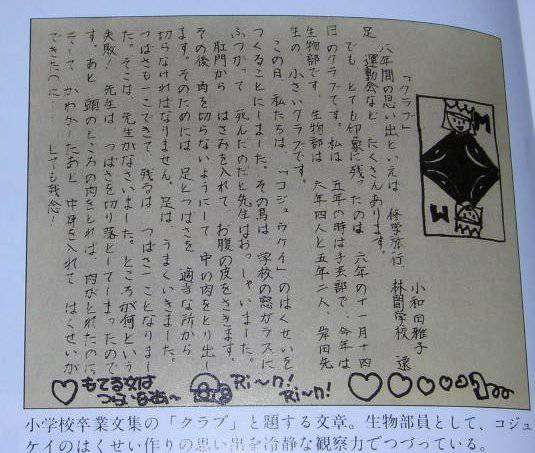 「クラブ」
小和田雅子
六年間の思い出といえば、修学旅行、林間学校、遠
足、運動会など、たくさんあります。
でも、とても印象に残ったのは、六年の十一月十四
日のクラブです。私は、五年の時は手芸部で、今年は
生物部です。生物部は、六年四人と五年二人、岸田先
生の、小さいクラブです。
この日、私たちは、「コジュウケイ」のはくせいを
つくることにしました。その鳥は、学校の窓ガラスに
ぶつかって、死んだのだと先生はおっしゃいました。
肛門から、はさみを入れて、お腹の皮をさきます。
その後、肉を切らないようにして、中の肉をとり出し
ます。そのためには、足とつばさを、適当な所から
切らなければなりません。足は、うまくいきました。
つばさも一こできて、残るは、つばさ一ことなりまし
た。そこは、先生がなさいました。ところが何という
失敗！先生は、つばさを切り落としてしまったので
す。あと、頭のところの肉をとれば、肉がとれたのに。
そして、かわかしたあと、中身を入れて、はくせいが
できたのに……。とても残念！
M
M
もてる女は
つらいなあ〜
Ri〜n!
Ri〜n!
小学校卒業文集の「クラブ」と題する文章。生物部員として、コジュ
ケイのはくせい作りの思い出を冷静な観察力でつづっている。